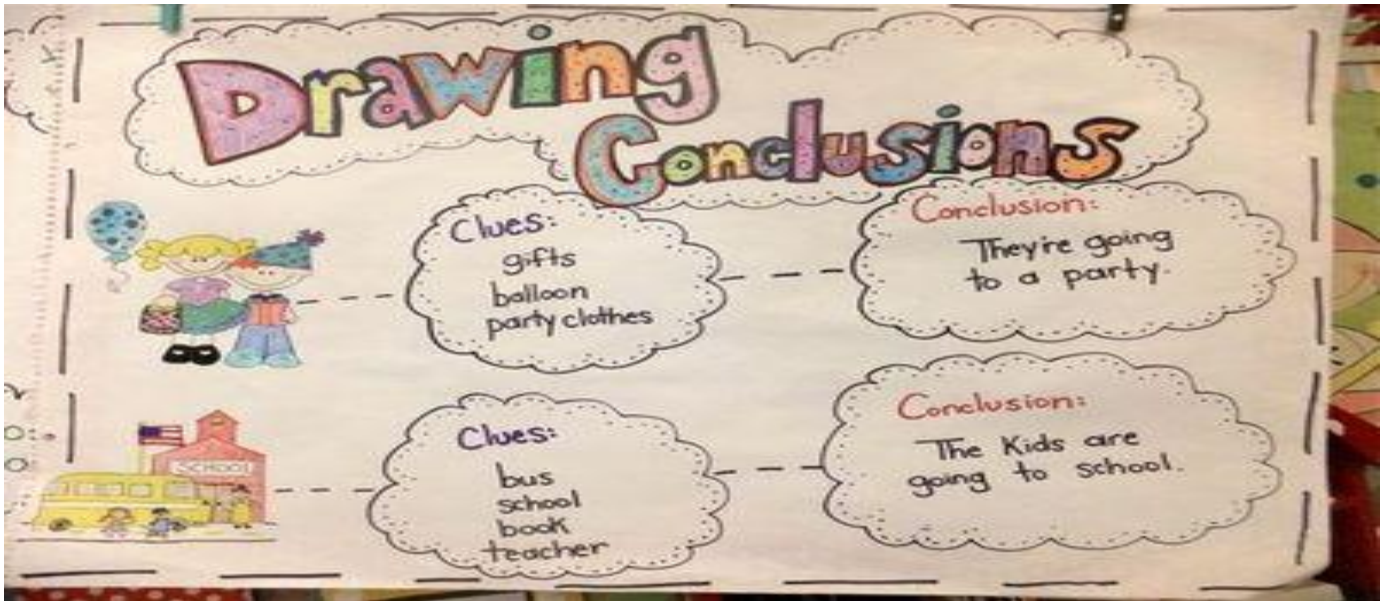 Drawing
Conclusions
Clues:
gifts
balloon
party clothes
Conclusion:
They're going
to a party.
SCHOOL
Clues:
bus
school
book
teacher
Conclusion:
The Kids are
going to school.